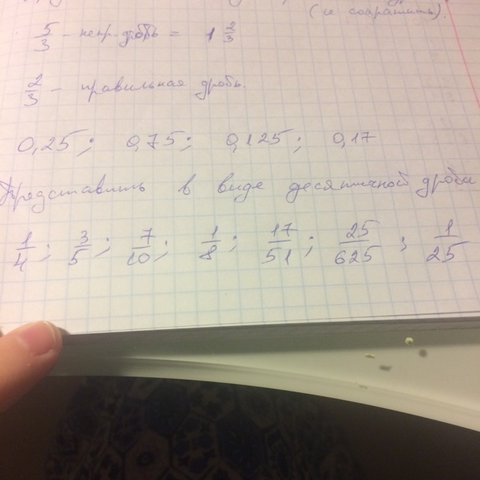 (и сократить).
5/3 - непр. дробь = 1 2/3
2/3 - правильная дробь.
0,25; 0,75; 0,125; 0,17
Представить в виде десятичной дроби
1/4; 3/5; 7/10; 1/8; 17/51; 25/625; 1/25